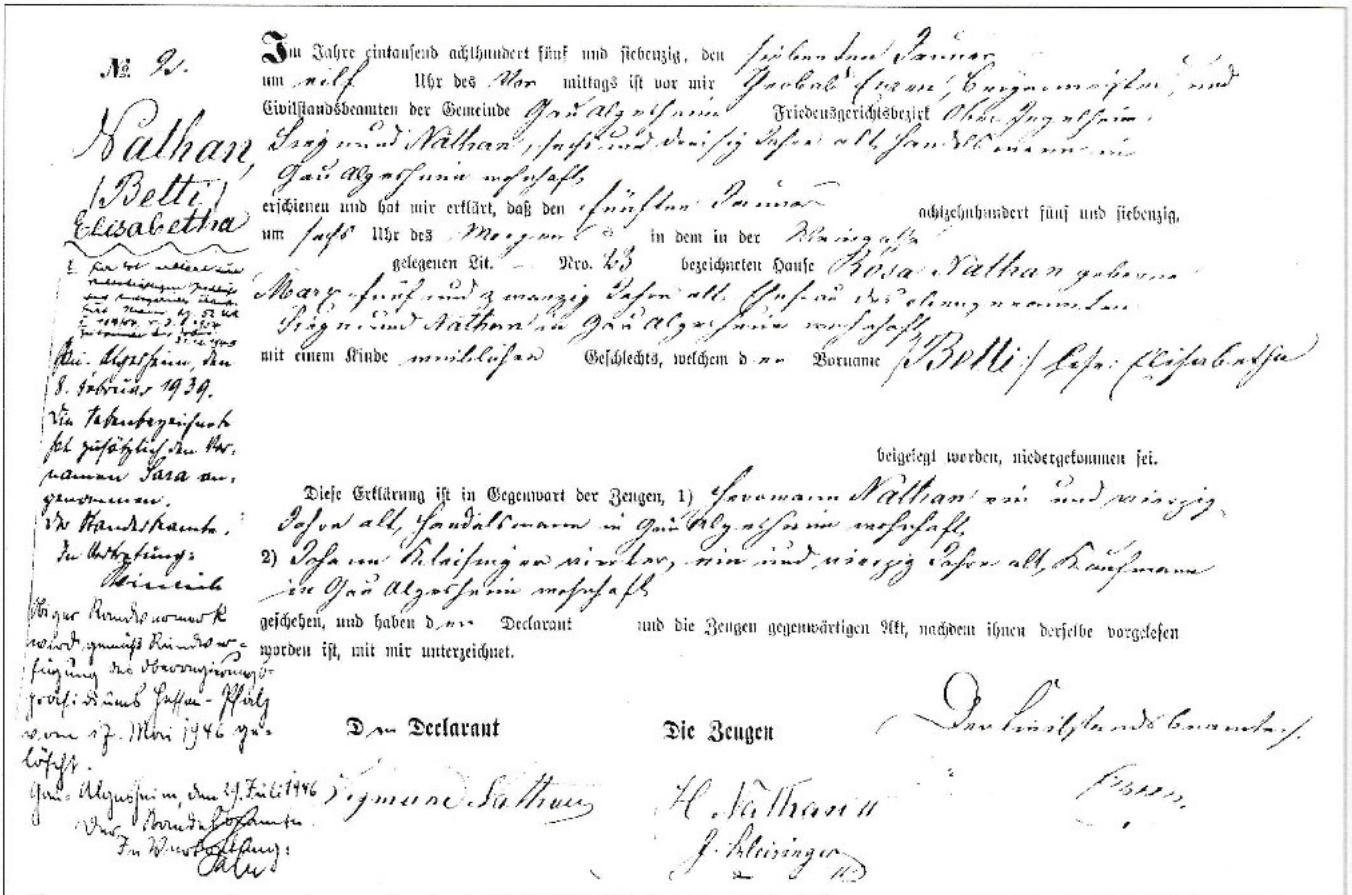 No. 2.
Nathan,
(Betti)
Elisabetha
Gau-Algesheim, den
8. Februar 1939.
Die Nebenbezeichnete
hat zusätzlich den Vor-
namen Sara an-
genommen.
Der Standesbeamte.
In Vertretung:
Obiger Randvermerk
wird gemäß Rundver-
fügung des Oberregierungs-
präsidiums Hessen-Pfalz
vom 17. Mai 1946 ge-
löscht.
Gau-Algesheim, den 29. Juli 1946
Der Standesbeamte
In Vertretung:
Im Jahre eintausend achthundert fünf und siebenzig, den siebenten Januar
um eilf Uhr des Vor mittags ist vor mir Ewen, Bürgermeister, und
Civilstandsbeamten der Gemeinde Gau Algesheim Friedensgerichtsbezirk Ober Ingelheim,
Siegmund Nathan, sechs und dreisig Jahre alt, Handelsmann in
Gau Algesheim wohnhaft,
erschienen und hat mir erklärt, daß den fünften Januar achtzehnhundert fünf und siebenzig,
um sechs Uhr des Morgens in dem in der Weingasse
gelegenen Lit. — Nro. 23 bezeichneten Hause Rosa Nathan geborene
Marx, fünf und zwanzig Jahre alt, Ehefrau des obengenannten
Siegmund Nathan in Gau Algesheim wohnhaft,
mit einem Kinde weiblichen Geschlechts, welchem der Vorname (Betti) lese: Elisabetha
beigelegt worden, niedergekommen sei.
Diese Erklärung ist in Gegenwart der Zeugen, 1) Herrmann Nathan ein und vierzig
Jahre alt, Handelsmann in Gau Algesheim wohnhaft,
2) Johann Kleisinger vierter, ein und vierzig Jahre alt, Kaufmann
in Gau Algesheim wohnhaft
geschehen, und haben der Declarant und die Zeugen gegenwärtigen Akt, nachdem ihnen derselbe vorgelesen
worden ist, mit mir unterzeichnet.
Der Declarant Die Zeugen Der Civilstandsbeamte.
Sigmund Nathan H. Nathan II Ewen.
J. Kleisinger